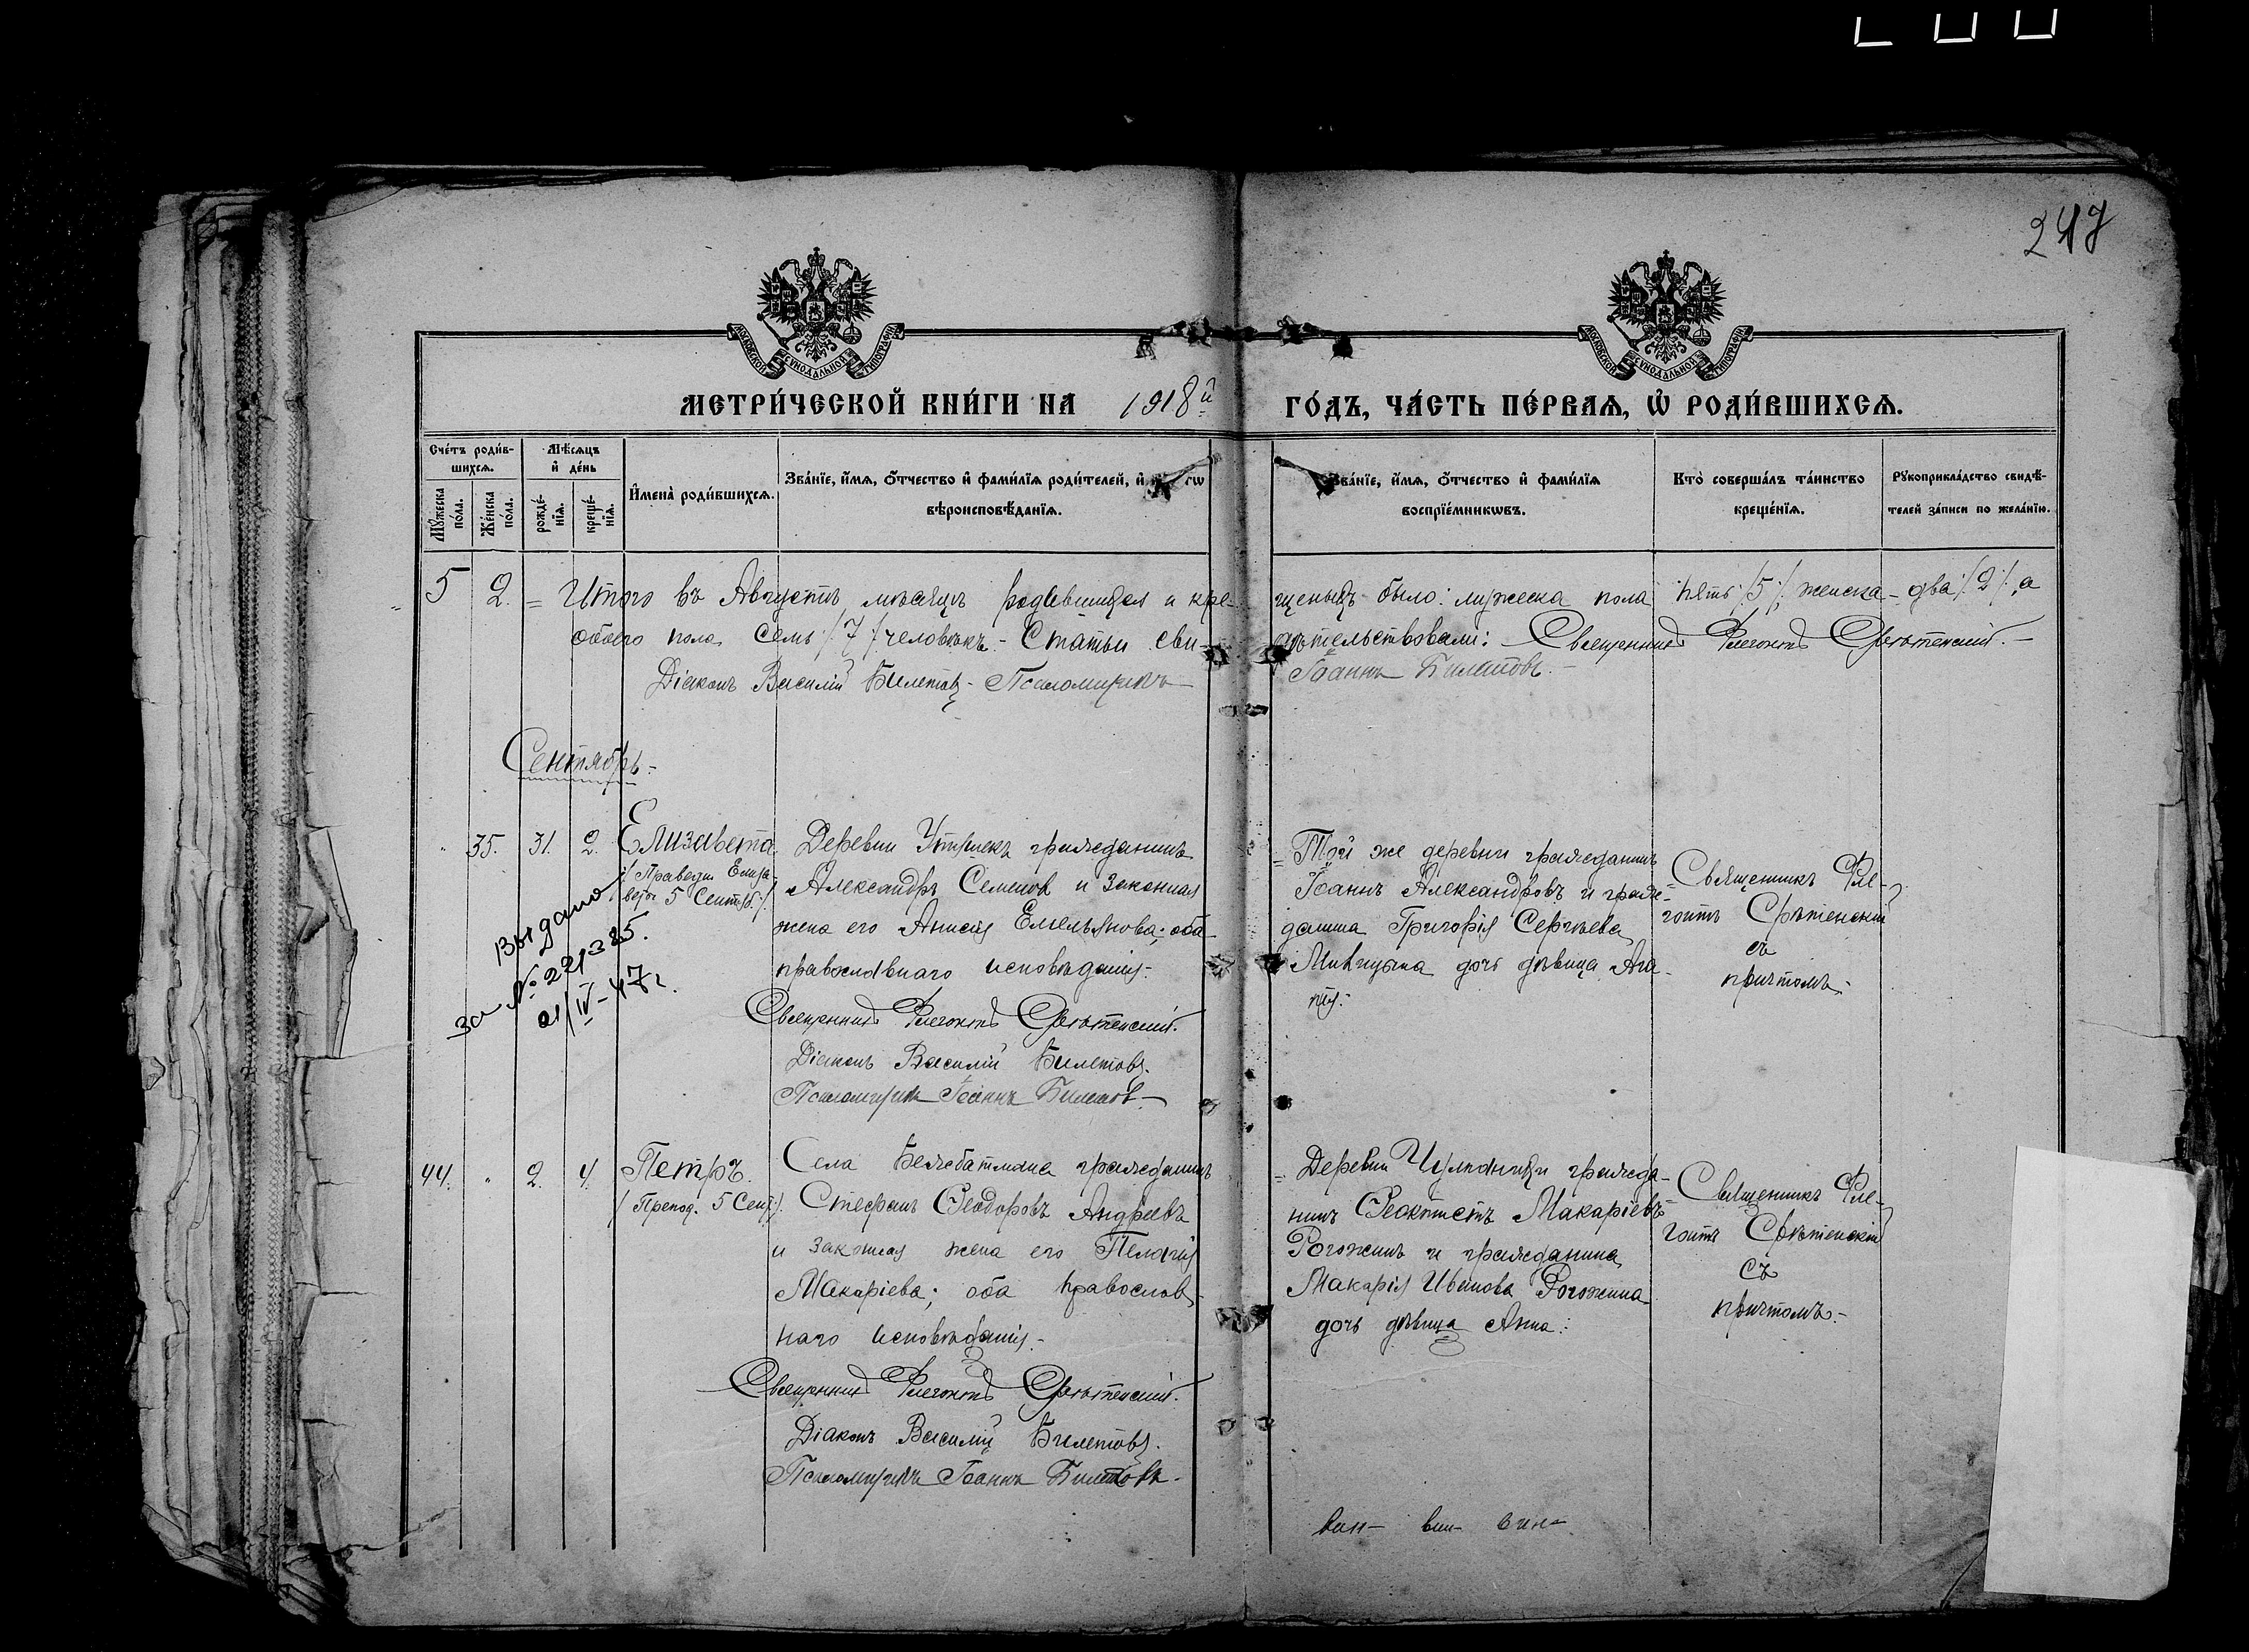 247
МОСКОВСКОЙ СУНОДАЛЬНОЙ ТИПОГРАФІИ
МОСКОВСКОЙ СУНОДАЛЬНОЙ ТИПОГРАФІИ
МЕТРИ́ЧЕСКОЙ КНИ́ГИ НА 1918й ГО́ДЪ, ЧА́СТЬ ПЕ́РВАЯ, Ѡ РОДИ́ВШИХСЯ.
Сче́тъ роди́в-
шихся.
Мѣ́сяцъ
и҆ де́нь
Мꙋ́жеска
по́ла.
Же́нска
по́ла.
рожде́-
нїя.
креще́-
нїя.
И҆мена̀ роди́вшихся.
Зва́нїе, и҆́мя, ѻ҆́тчество и҆ фами́лїя роди́телей, и҆
вѣроисповѣ́данїя.
Зва́нїе, и҆́мя, ѻ҆́тчество и҆ фами́лїя
воспрїе́мникѡвъ.
Кто̀ соверша́лъ та́инство
креще́нїя.
Рꙋкоприкла́дство свидѣ́-
телей за́писи по жела́нїю.
5 2. = Итого въ Августѣ мѣсяцѣ родившихся и кре- щеныхъ было: мужеска пола пять /5/, женска - два /2/, а
обоего пола семь /7/ человѣкъ. - Статьи сви- дѣтельствовали: Священникъ Флегонтъ Срѣтенскій. -
Діаконъ Василій Билетовъ - Псаломщикъ Іоаннъ Билетовъ. -
Сентябрь. -
35. 31. 2. Елизавета
/Праведн. Елиза-
веты 5 Сентяб./.
Выдано
за № 221385.
21/IV-47г.
Деревни
гражданинъ
Александръ Семенов и законная
жена его Анисія Емельянова; оба
православнаго исповѣданія. -
Священникъ Флегонтъ Срѣтенскій.
Діаконъ Василій Билетовъ.
Псаломщикъ Іоаннъ Билетов. -
= Той же деревни гражданинъ
Іоаннъ Александровъ и граж-
данина Григорія Сергѣева
дочь дѣвица Ага-
пія. -
= Священникъ Фле-
гонтъ Срѣтенскій
съ
причтомъ. -
44. " 2. 4. Петръ.
/Препод. 5 Сент./.
Села гражданинъ
Стефанъ Ѳеодоровъ Андреевъ
и законная жена его Пелагія
Макаріева; оба православ-
наго исповѣданія. -
Священникъ Флегонтъ Срѣтенскій.
Діаконъ Василій Билетовъ.
Псаломщикъ Іоаннъ Билетовъ. -
= Деревни гражда-
нинъ Ѳеоктистъ Макаріевъ
Рогожинъ и гражданина
Макарія Иванова Рогожина
дочь дѣвица Анна. -
= Священникъ Фле-
гонтъ Срѣтенскій
съ
причтомъ. -